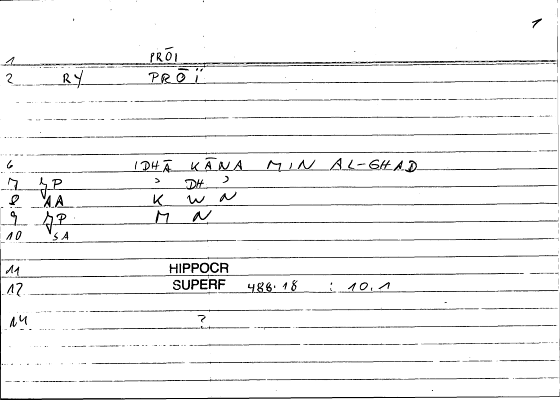 1
1 PRŌI
2 RY PRŌÏ
6 IDHĀ KĀNA MIN AL-GHAD
7 ʒP ʾ DH ʾ
8 AA K W N
9 ʒP M N
10 SA
11 HIPPOCR
12 SUPERF 488.18 : 10.1
14 ?